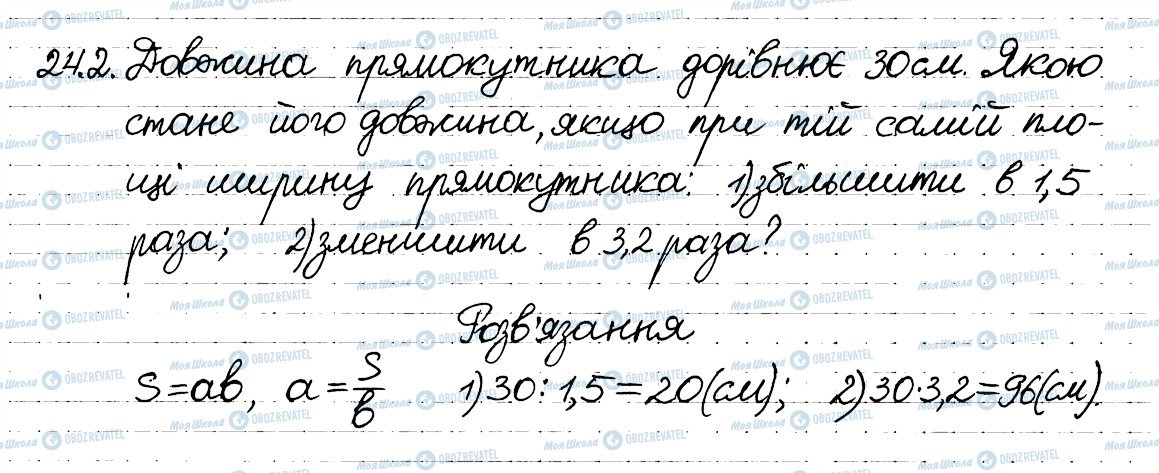 24.2. Довжина прямокутника дорівнює 30 см. Якою
стане його довжина, якщо при тій самій пло-
щі ширину прямокутника: 1) збільшити в 1,5
раза; 2) зменшити в 3,2 раза?
Розв'язання
S=ab, a=S/b 1) 30:1,5=20(см); 2) 30·3,2=96(см).